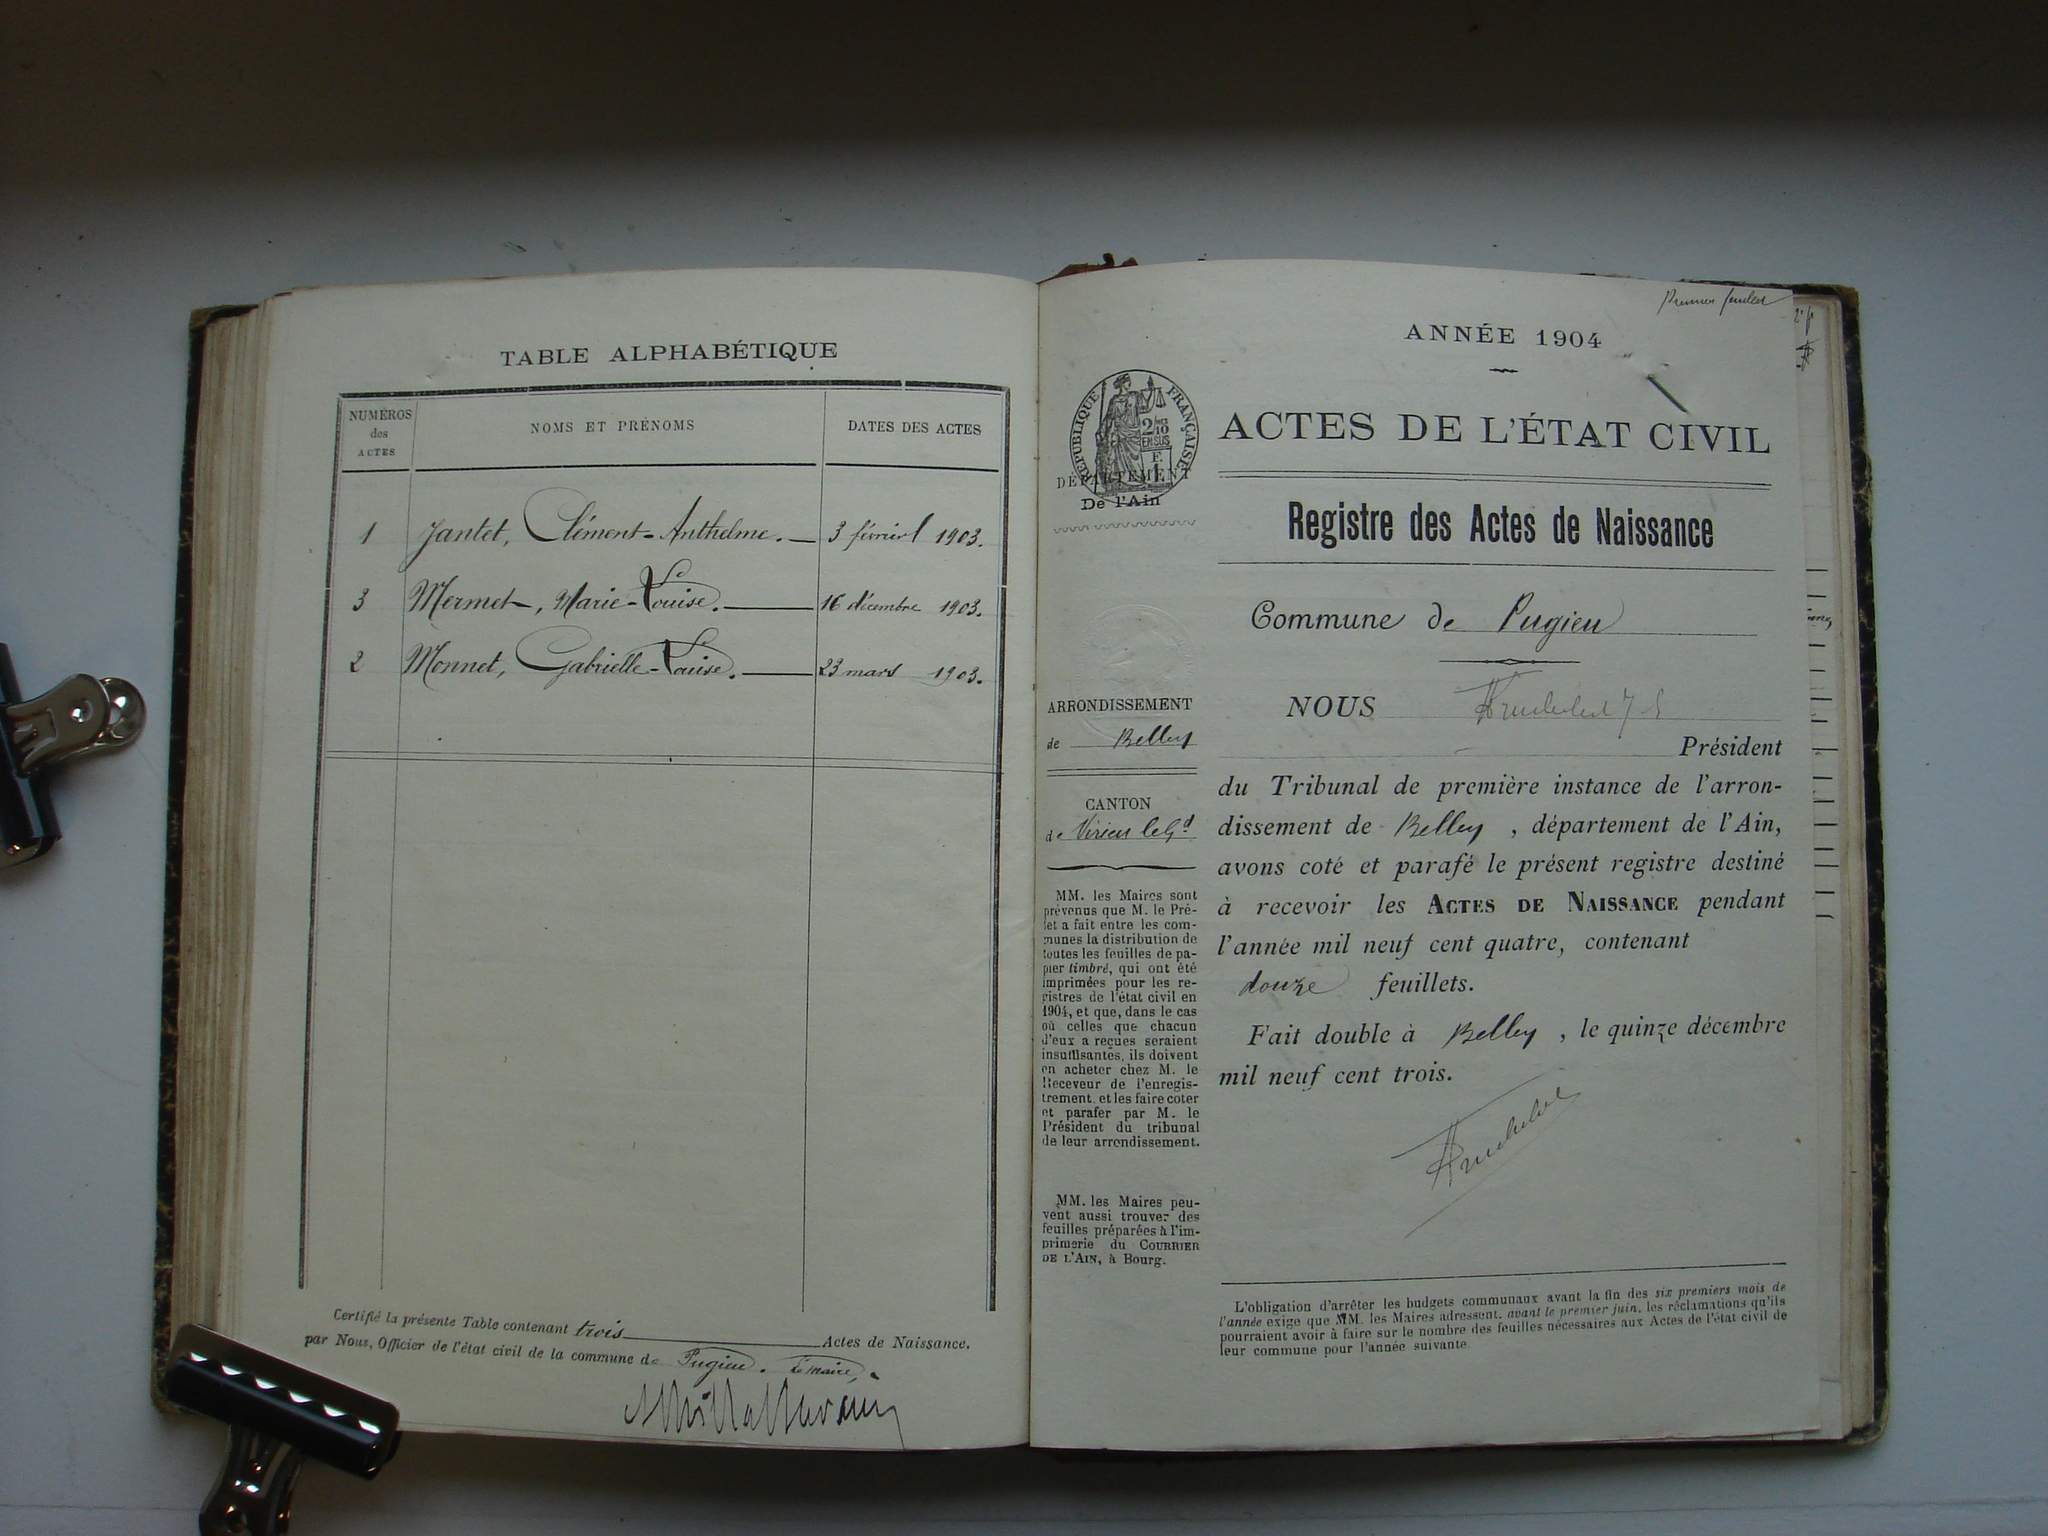 TABLE ALPHABÉTIQUE
NUMÉROS des ACTES
NOMS ET PRÉNOMS
DATES DES ACTES
1 Jantet, Clément-Anthelme. 3 février 1903.
3 Mermet, Marie-Louise. 16 décembre 1903.
2 Monnet, Gabrielle-Louise. 23 mars 1903.
Certifié la présente Table contenant trois Actes de Naissance,
par Nous, Officier de l'état civil de la commune de Pugieu. Le maire,
Premier feuillet
ANNÉE 1904
RÉPUBLIQUE FRANÇAISE
2/10
EN SUS
DÉPARTEMENT
De l'Ain
ARRONDISSEMENT
de Belley
CANTON
de Virieu le Gd
MM. les Maires sont
prévenus que M. le Pré-
fet a fait entre les com-
munes la distribution de
toutes les feuilles de pa-
pier timbré, qui ont été
imprimées pour les re-
gistres de l'état civil en
1904, et que, dans le cas
où celles que chacun
d'eux a reçues seraient
insuffisantes, ils doivent
en acheter chez M. le
Receveur de l'enregis-
trement, et les faire coter
et parafer par M. le
Président du tribunal
de leur arrondissement.
MM. les Maires peu-
vent aussi trouver des
feuilles préparées à l'im-
primerie du COURRIER
DE L'AIN, à Bourg.
ACTES DE L'ÉTAT CIVIL
Registre des Actes de Naissance
Commune de Pugieu
NOUS
Président
du Tribunal de première instance de l'arron-
dissement de Belley, département de l'Ain,
avons coté et parafé le présent registre destiné
à recevoir les ACTES DE NAISSANCE pendant
l'année mil neuf cent quatre, contenant
douze feuillets.
Fait double à Belley, le quinze décembre
mil neuf cent trois.
L'obligation d'arrêter les budgets communaux avant la fin des six premiers mois de
l'année exige que MM. les Maires adressent, avant le premier juin, les réclamations qu'ils
pourraient avoir à faire sur le nombre des feuilles nécessaires aux Actes de l'état civil de
leur commune pour l'année suivante.